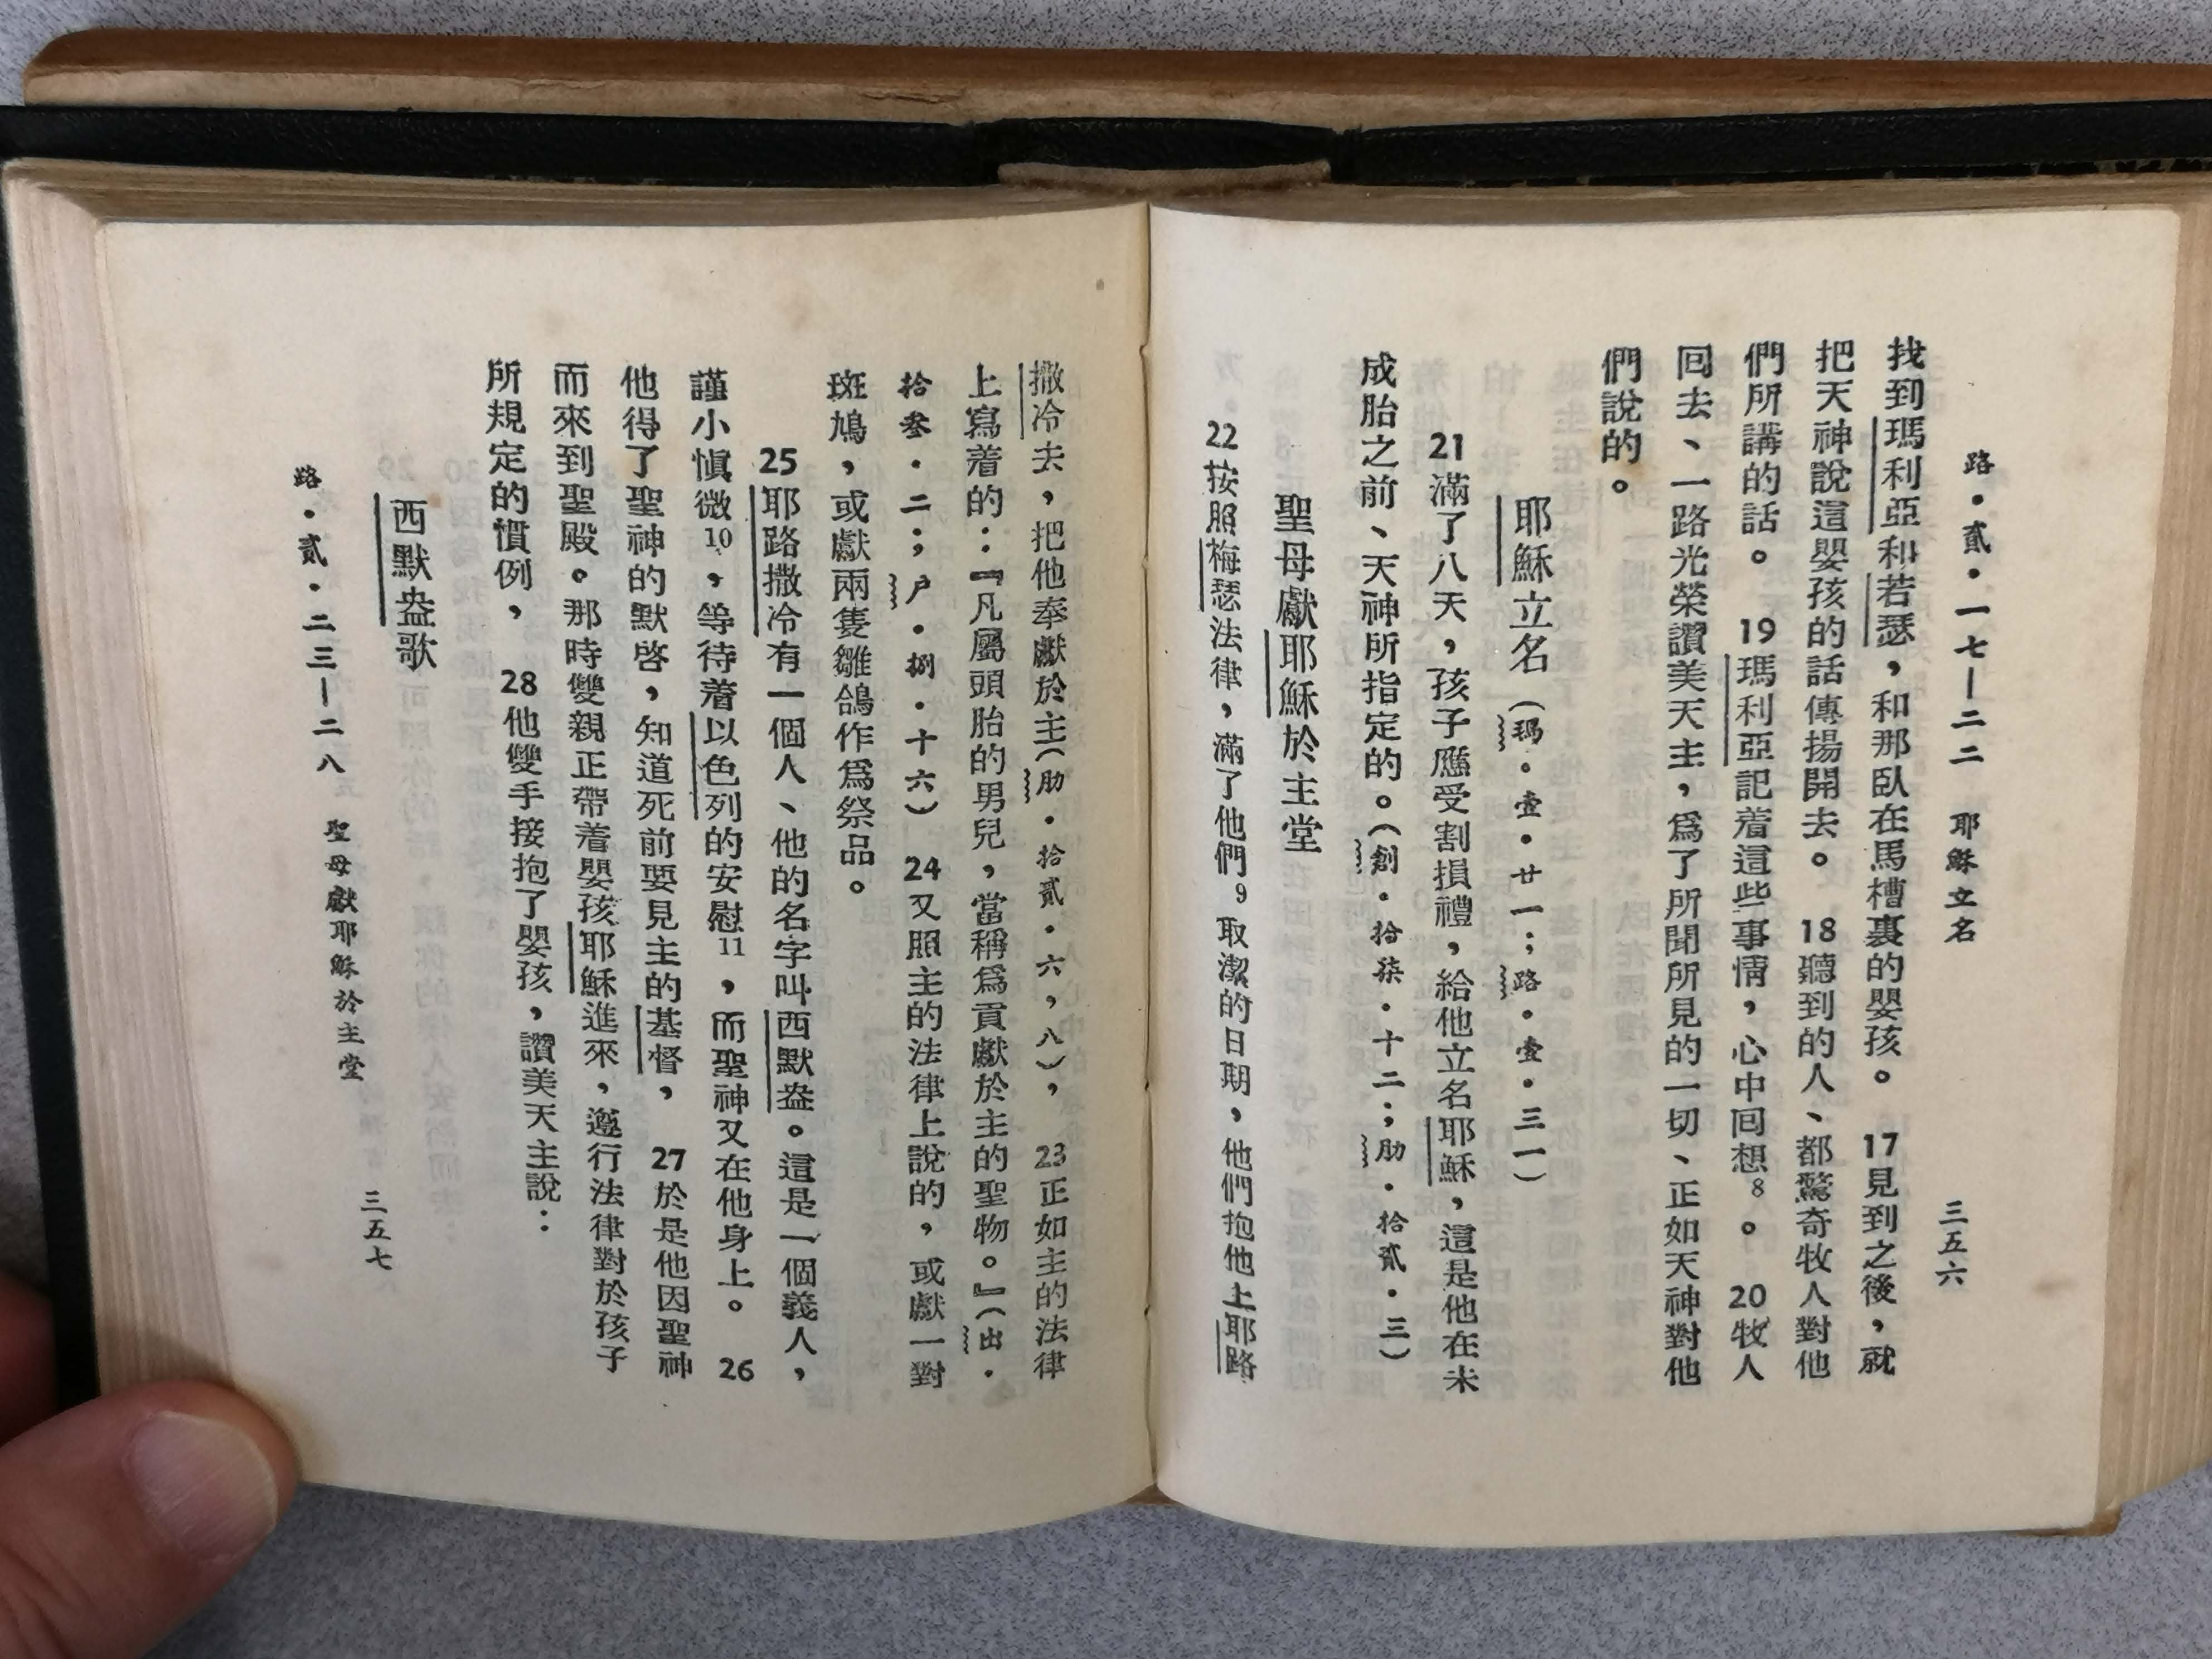 路・貳・一七—二二　耶穌立名　三五六
找到瑪利亞和若瑟，和那臥在馬槽裏的嬰孩。　17見到之後，就
把天神說這嬰孩的話傳揚開去。　18聽到的人、都驚奇牧人對他
們所講的話。　19瑪利亞記着這些事情，心中回想8。　20牧人
回去、一路光榮讚美天主，爲了所聞所見的一切、正如天神對他
們說的。
耶穌立名（瑪・壹・廿一；路・壹・三一）
21滿了八天，孩子應受割損禮，給他立名耶穌，這是他在未
成胎之前、天神所指定的。（創・拾柒・十二；肋・拾貳・三）
聖母獻耶穌於主堂
22按照梅瑟法律，滿了他們9取潔的日期，他們抱他上耶路
撒冷去，把他奉獻於主（肋・拾貳・六，八），　23正如主的法律
上寫着的：『凡屬頭胎的男兒，當稱爲貢獻於主的聖物。』（出・
拾叁・二；戶・捌・十六）　24又照主的法律上說的，或獻一對
斑鳩，或獻兩隻雛鴿作爲祭品。
25耶路撒冷有一個人、他的名字叫西默盎。這是一個義人，
謹小愼微10，等待着以色列的安慰11，而聖神又在他身上。　26
他得了聖神的默啓，知道死前要見主的基督，　27於是他因聖神
而來到聖殿。那時雙親正帶着嬰孩耶穌進來，遵行法律對於孩子
所規定的慣例，　28他雙手接抱了嬰孩，讚美天主說：
西默盎歌
路・貳・二三—二八　聖母獻耶穌於主堂　三五七